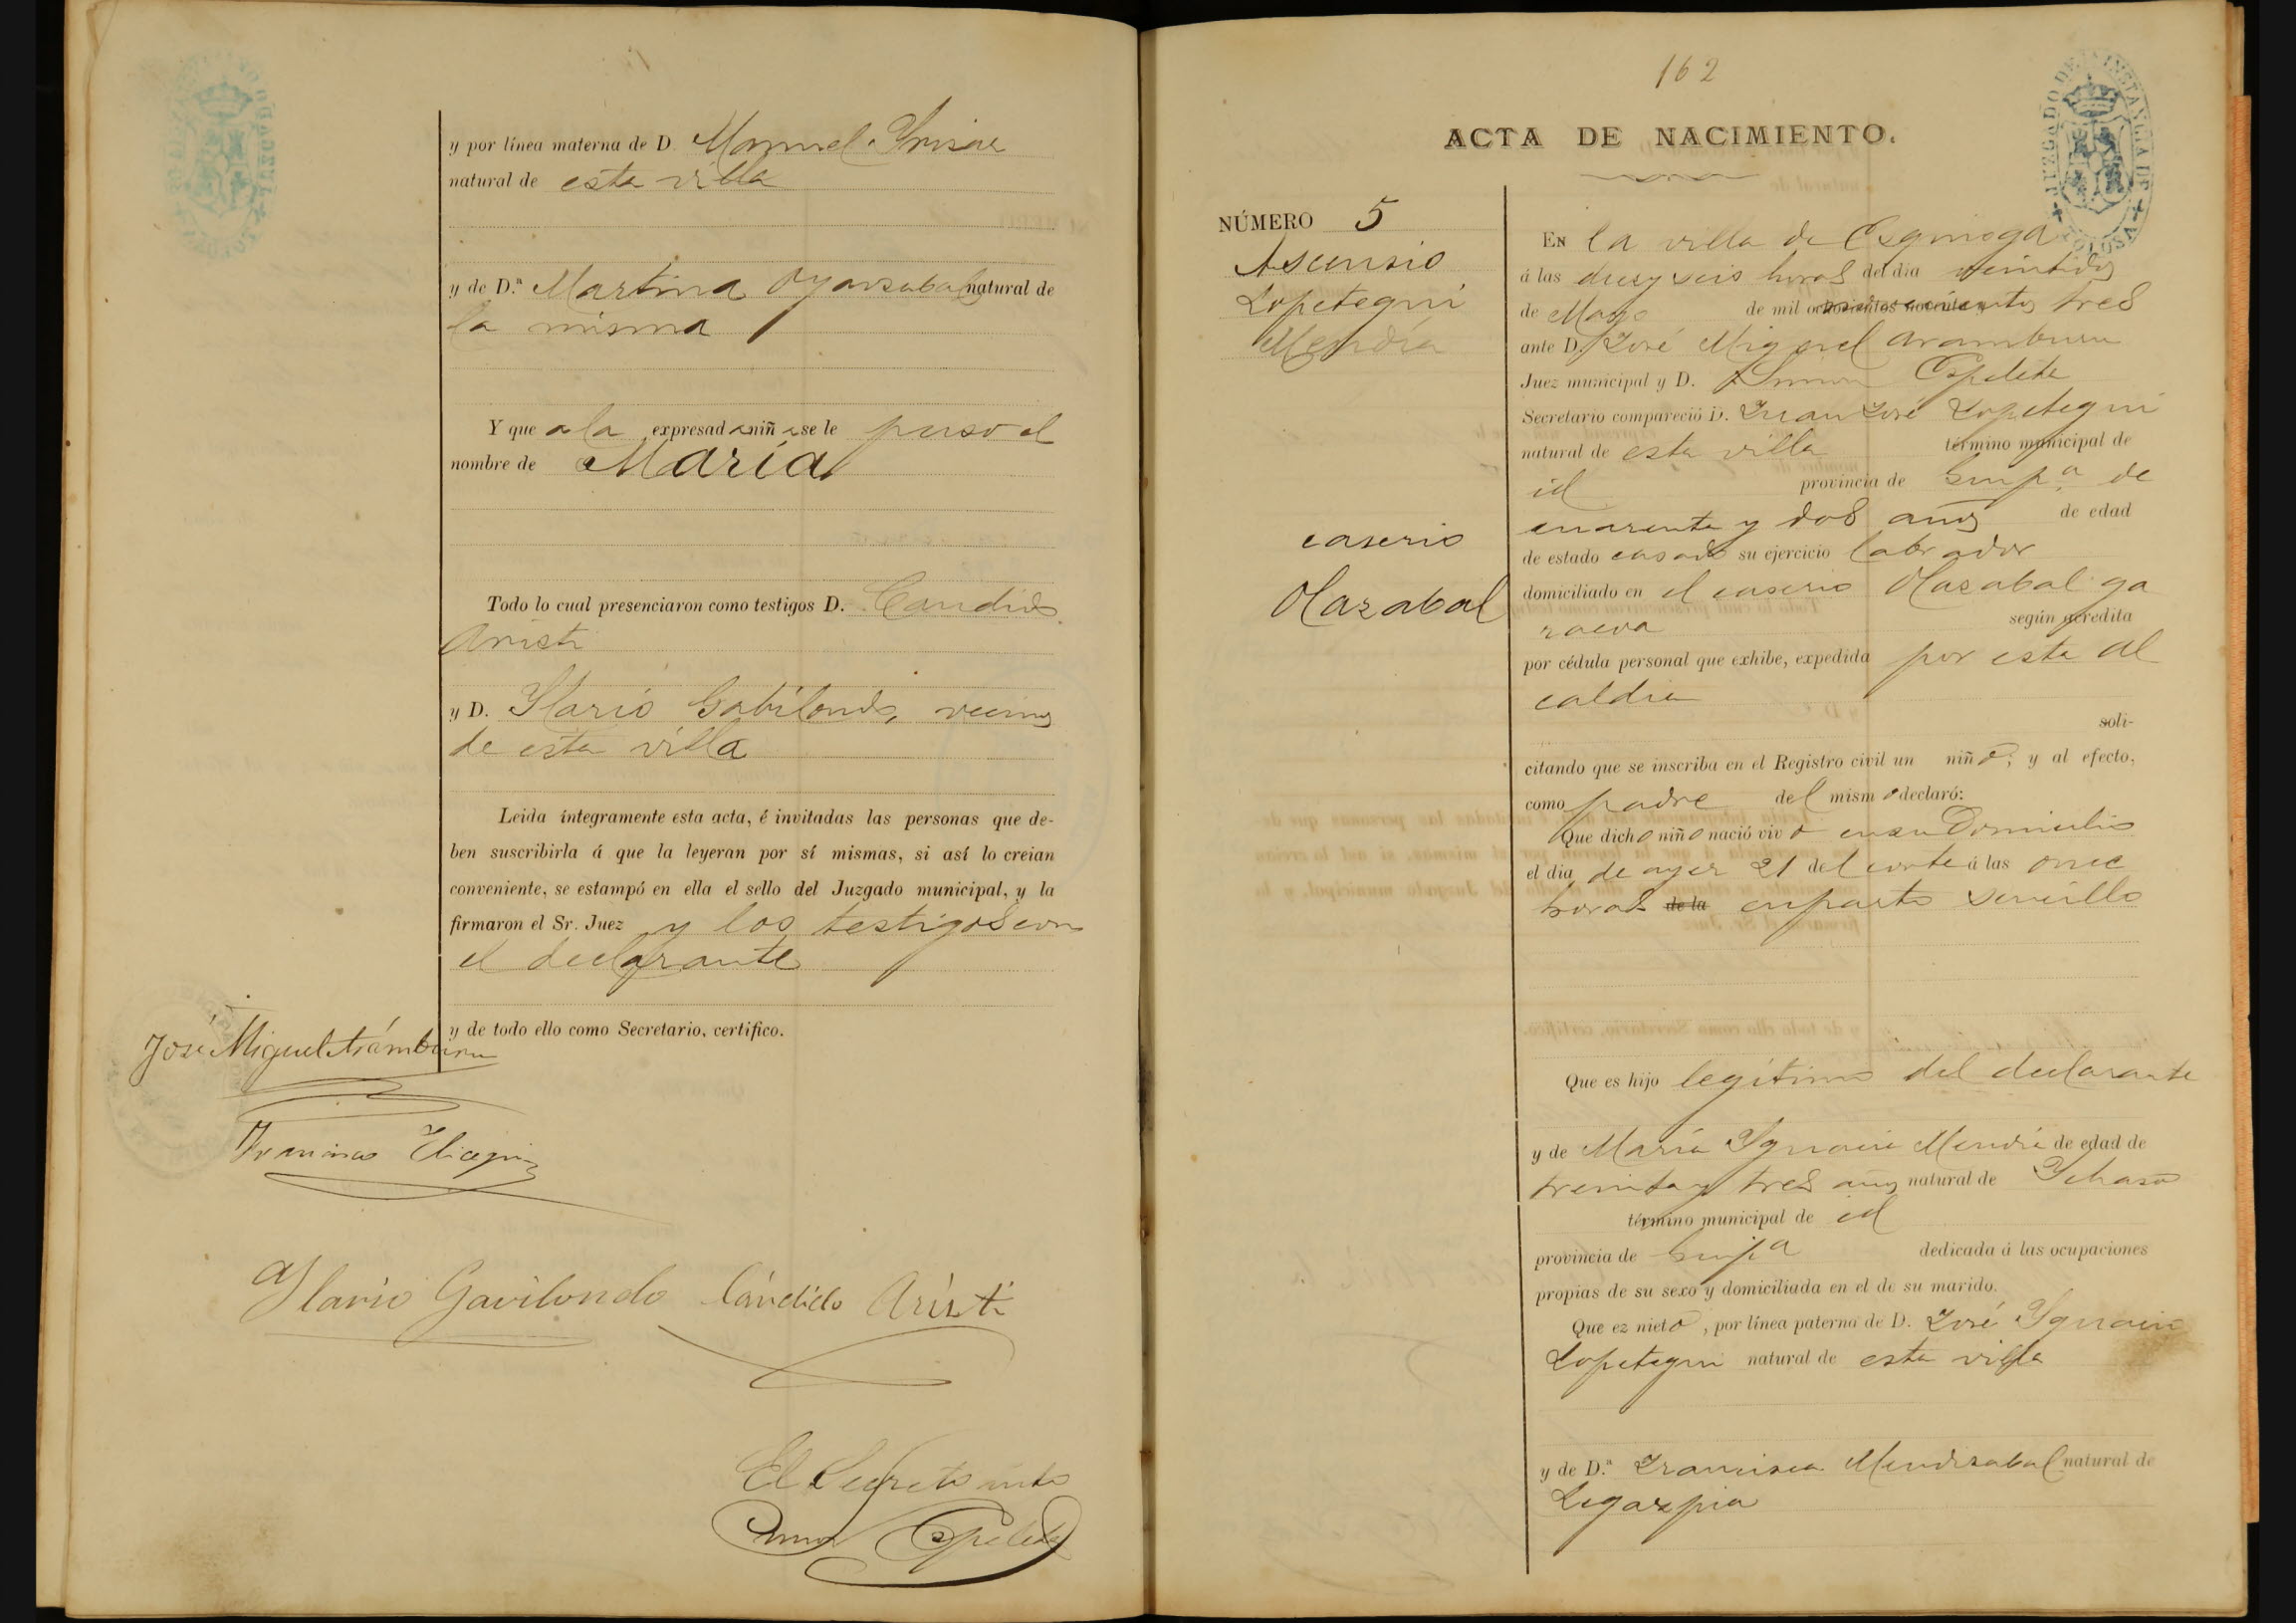 y por línea materna de D. Manuel Yrisar
natural de esta villa
y de D.ª Martina Oyarzabal natural de
la misma
Y que a la expresad a niñ a se le puso el
nombre de María
Todo lo cual presenciaron como testigos D. Candido
Aristi
y D. Ylario Gabilondo, vecinos
de esta villa
Leida íntegramente esta acta, é invitadas las personas que de-
ben suscribirla á que la leyeran por sí mismas, si así lo creian
conveniente, se estampó en ella el sello del Juzgado municipal, y la
firmaron el Sr. Juez y los testigos con
el declarante
y de todo ello como Secretario, certifico.
José Miguel Arámburu
Francisco Elicegui
Ylario Gavilondo Cándido Aristi
El Secretario
Simon Espeleta
162
ACTA DE NACIMIENTO.
JUZGADO DE 1.ª INSTANCIA DE TOLOSA
NÚMERO 5
Ascensio
Lopetegui
Mendía
caserio
Olazabal
EN la villa de Ezquioga
á las diez y seis horas del día veintidos
de Mayo de mil novecientos tres
ante D. José Miguel Aramburu
Juez municipal y D. Simon Espeleta
Secretario compareció D. Juan José Lopetegui
natural de esta villa término municipal de
id provincia de Guip.ª de
cuarenta y dos años de edad
de estado casado su ejercicio labrador
domiciliado en el caserio Olazabal ga
raeva según acredita
por cédula personal que exhibe, expedida por esta Al
caldia
soli-
citando que se inscriba en el Registro civil un niñ o; y al efecto,
como padre del mism o declaró:
Que dich o niñ o nació viv o en su Domicilio
el dia de ayer 21 del corte á las once
horas de la en parto sencillo
Que es hijo legítimo del declarante
y de María Ygnacia Mendia de edad de
treinta y tres años natural de Ychaso
término municipal de id
provincia de Guip.ª dedicada á las ocupaciones
propias de su sexo y domiciliada en el de su marido.
Que ez niet o, por línea paterna de D. José Ygnacio
Lopetegui natural de esta villa
y de D.ª Francisca Mendizabal natural de
Legazpia